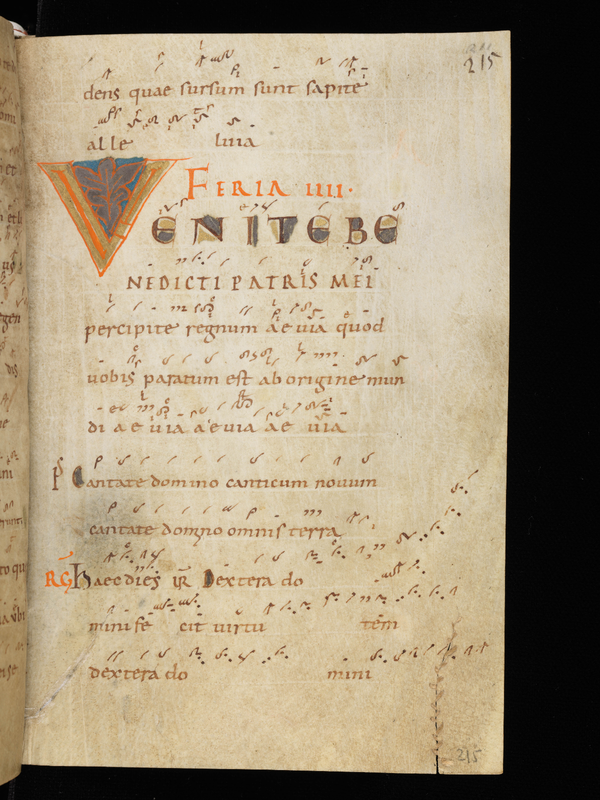 215
dens quae sursum sunt sapite
alle luia
FERIA IIII.
VENITE BE
NEDICTI PATRIS MEI
percipite regnum aeuia quod
uobis paratum est ab origine mun
di aeuia aeuia aeuia
Ps Cantate domino canticum nouum
cantate domno omnis terra
RG Haec dies VR Dextera do
mini fe cit uirtu tem
dextera do mini
215